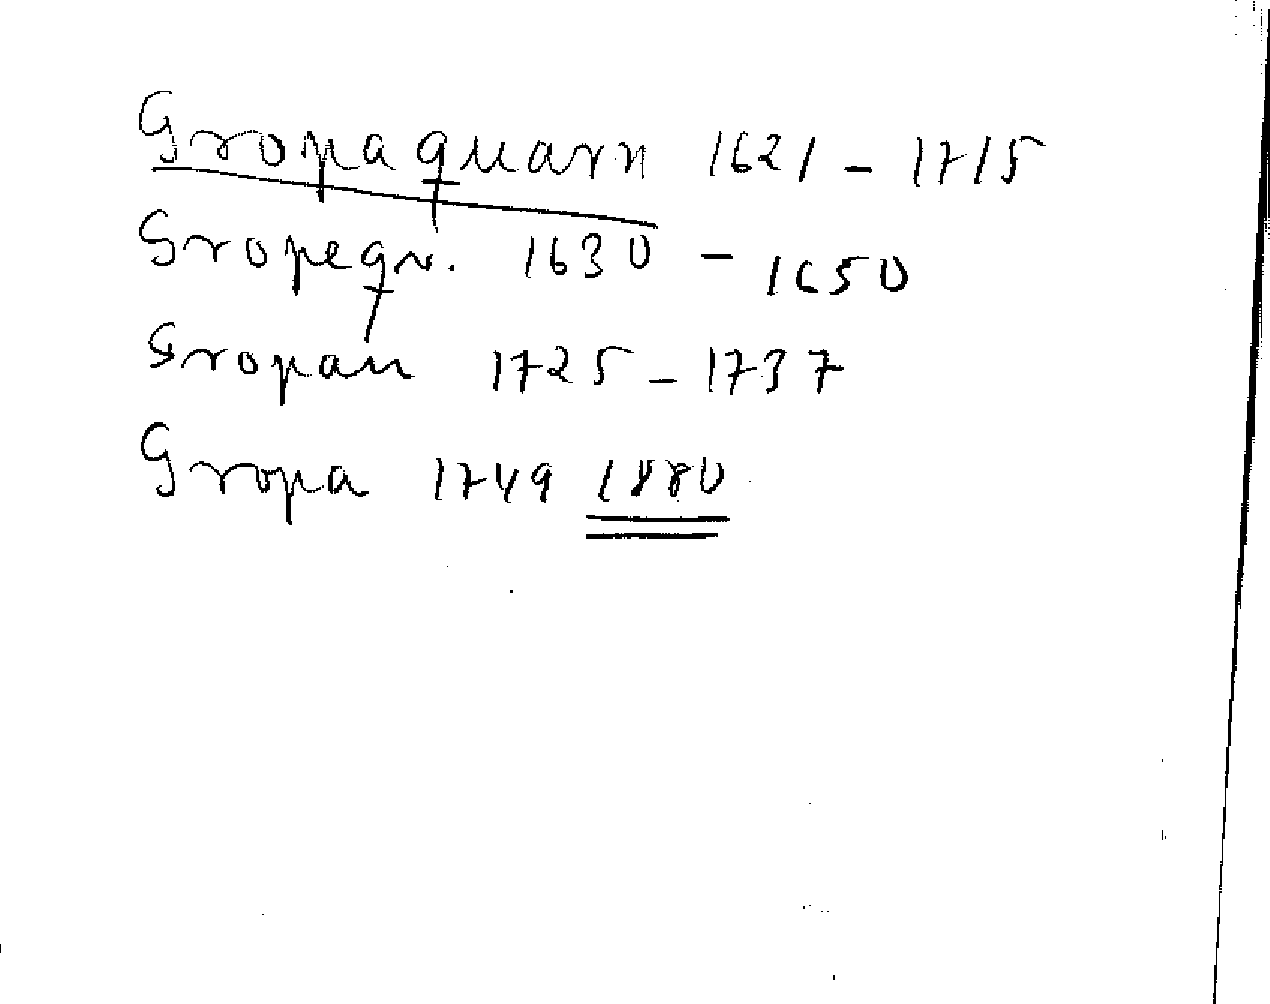 Gropaquarn 1621 - 1715
Gropeqv. 1630 - 1650
Gropan 1725 - 1737
Gropa 1749 1880